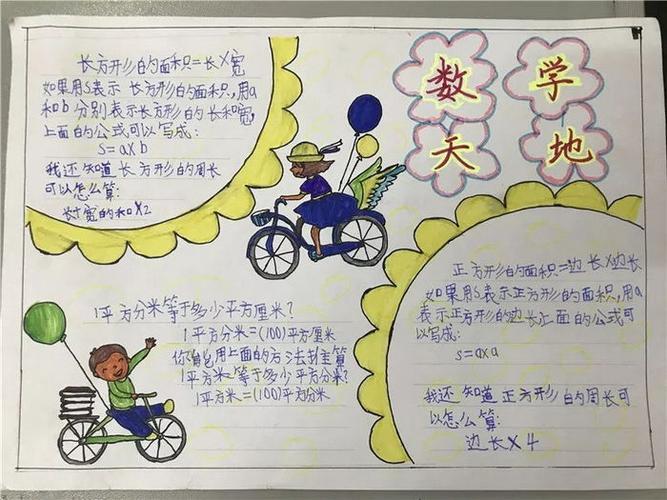 数学
天地
长方形的面积=长×宽
如果用S表示长方形的面积,用a
和b分别表示长方形的长和宽,
上面的公式可以写成:
S=a×b
我还知道长方形的周长
可以怎么算:
长+宽的和×2
正方形的面积=边长×边长
如果用S表示正方形的面积,用a
表示正方形的边长上面的公式可
以写成:
S=a×a
我还知道正方形的周长可
以怎么算:
边长×4
1平方分米等于多少平方厘米?
1平方分米=(100)平方厘米
你能用上面的方法推算
1平方米等于多少平方分米?
1平方米=(100)平方分米